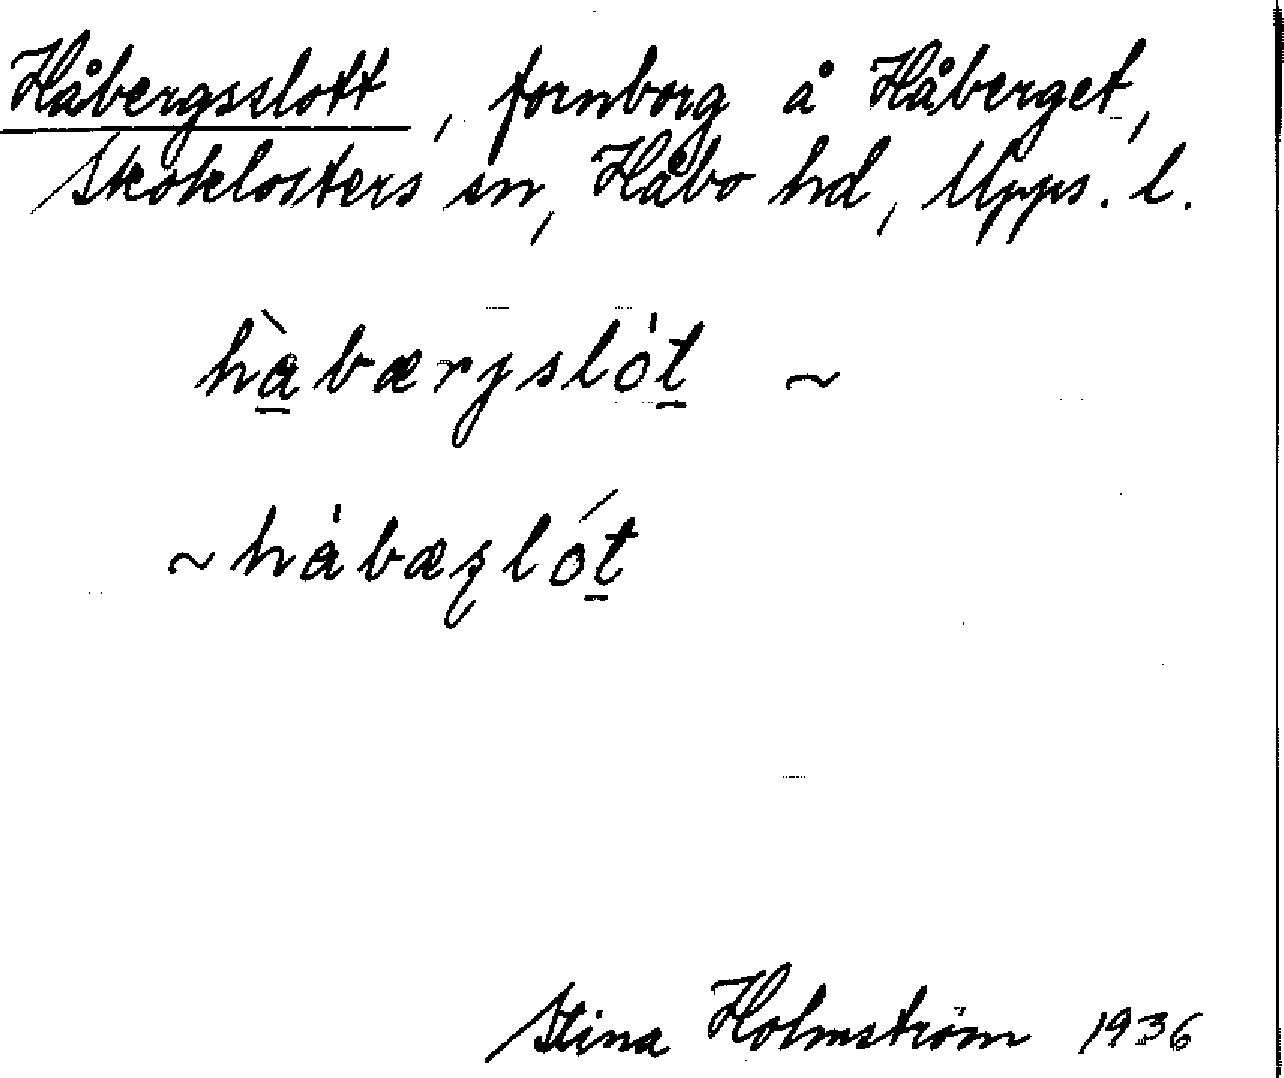 Håbergsslott, fornborg å Håberget,
Skoklosters sn, Håbo hd, Upps. l.
hàbærgslót ~
~ håbæslót
Stina Holmström 1936